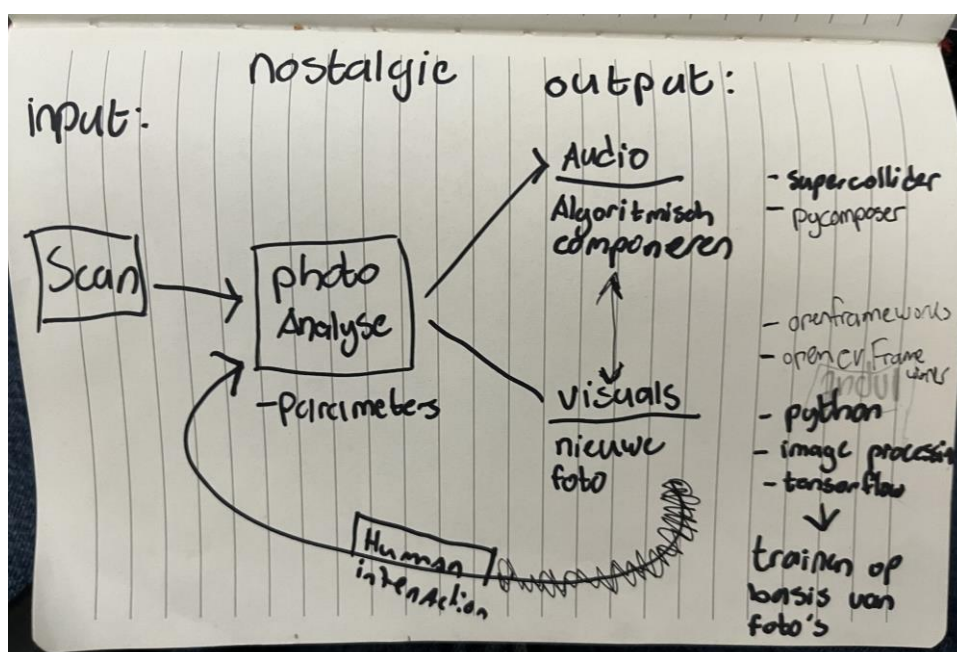 nostalgic
input:
output:
Scan
photo
Analyse
-parameters
Audio
Algoritmisch
componeren
visuals
nieuwe
foto
Human
intenAction
- supercollider
- pycomposer
- openframeworks
- opencv Frame
works
- python
- image processin
- tensorflow
trainen op
basis van
foto's